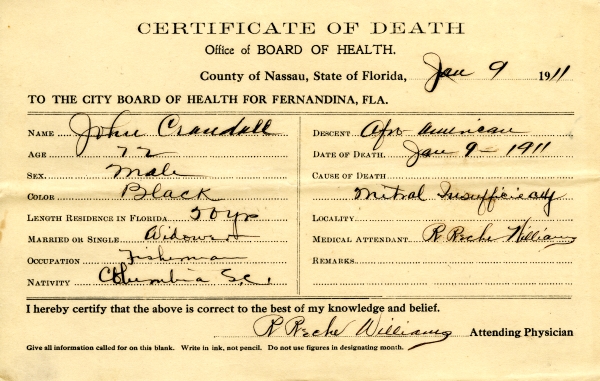 CERTIFICATE OF DEATH
Office of BOARD OF HEALTH.
County of Nassau, State of Florida, Jan 9 1911
TO THE CITY BOARD OF HEALTH FOR FERNANDINA, FLA.
NAME John Crandall
AGE 72
SEX. Male
COLOR Black
LENGTH RESIDENCE IN FLORIDA 50 yrs
MARRIED OR SINGLE Widower
OCCUPATION Fisherman
NATIVITY Columbia S.C.
DESCENT. Afro American
DATE OF DEATH. Jan 9 - 1911
CAUSE OF DEATH
Mitral Insufficiency
LOCALITY
MEDICAL ATTENDANT Williams
REMARKS.
I hereby certify that the above is correct to the best of my knowledge and belief.
Williams Attending Physician
Give all information called for on this blank. Write in ink, not pencil. Do not use figures in designating month.